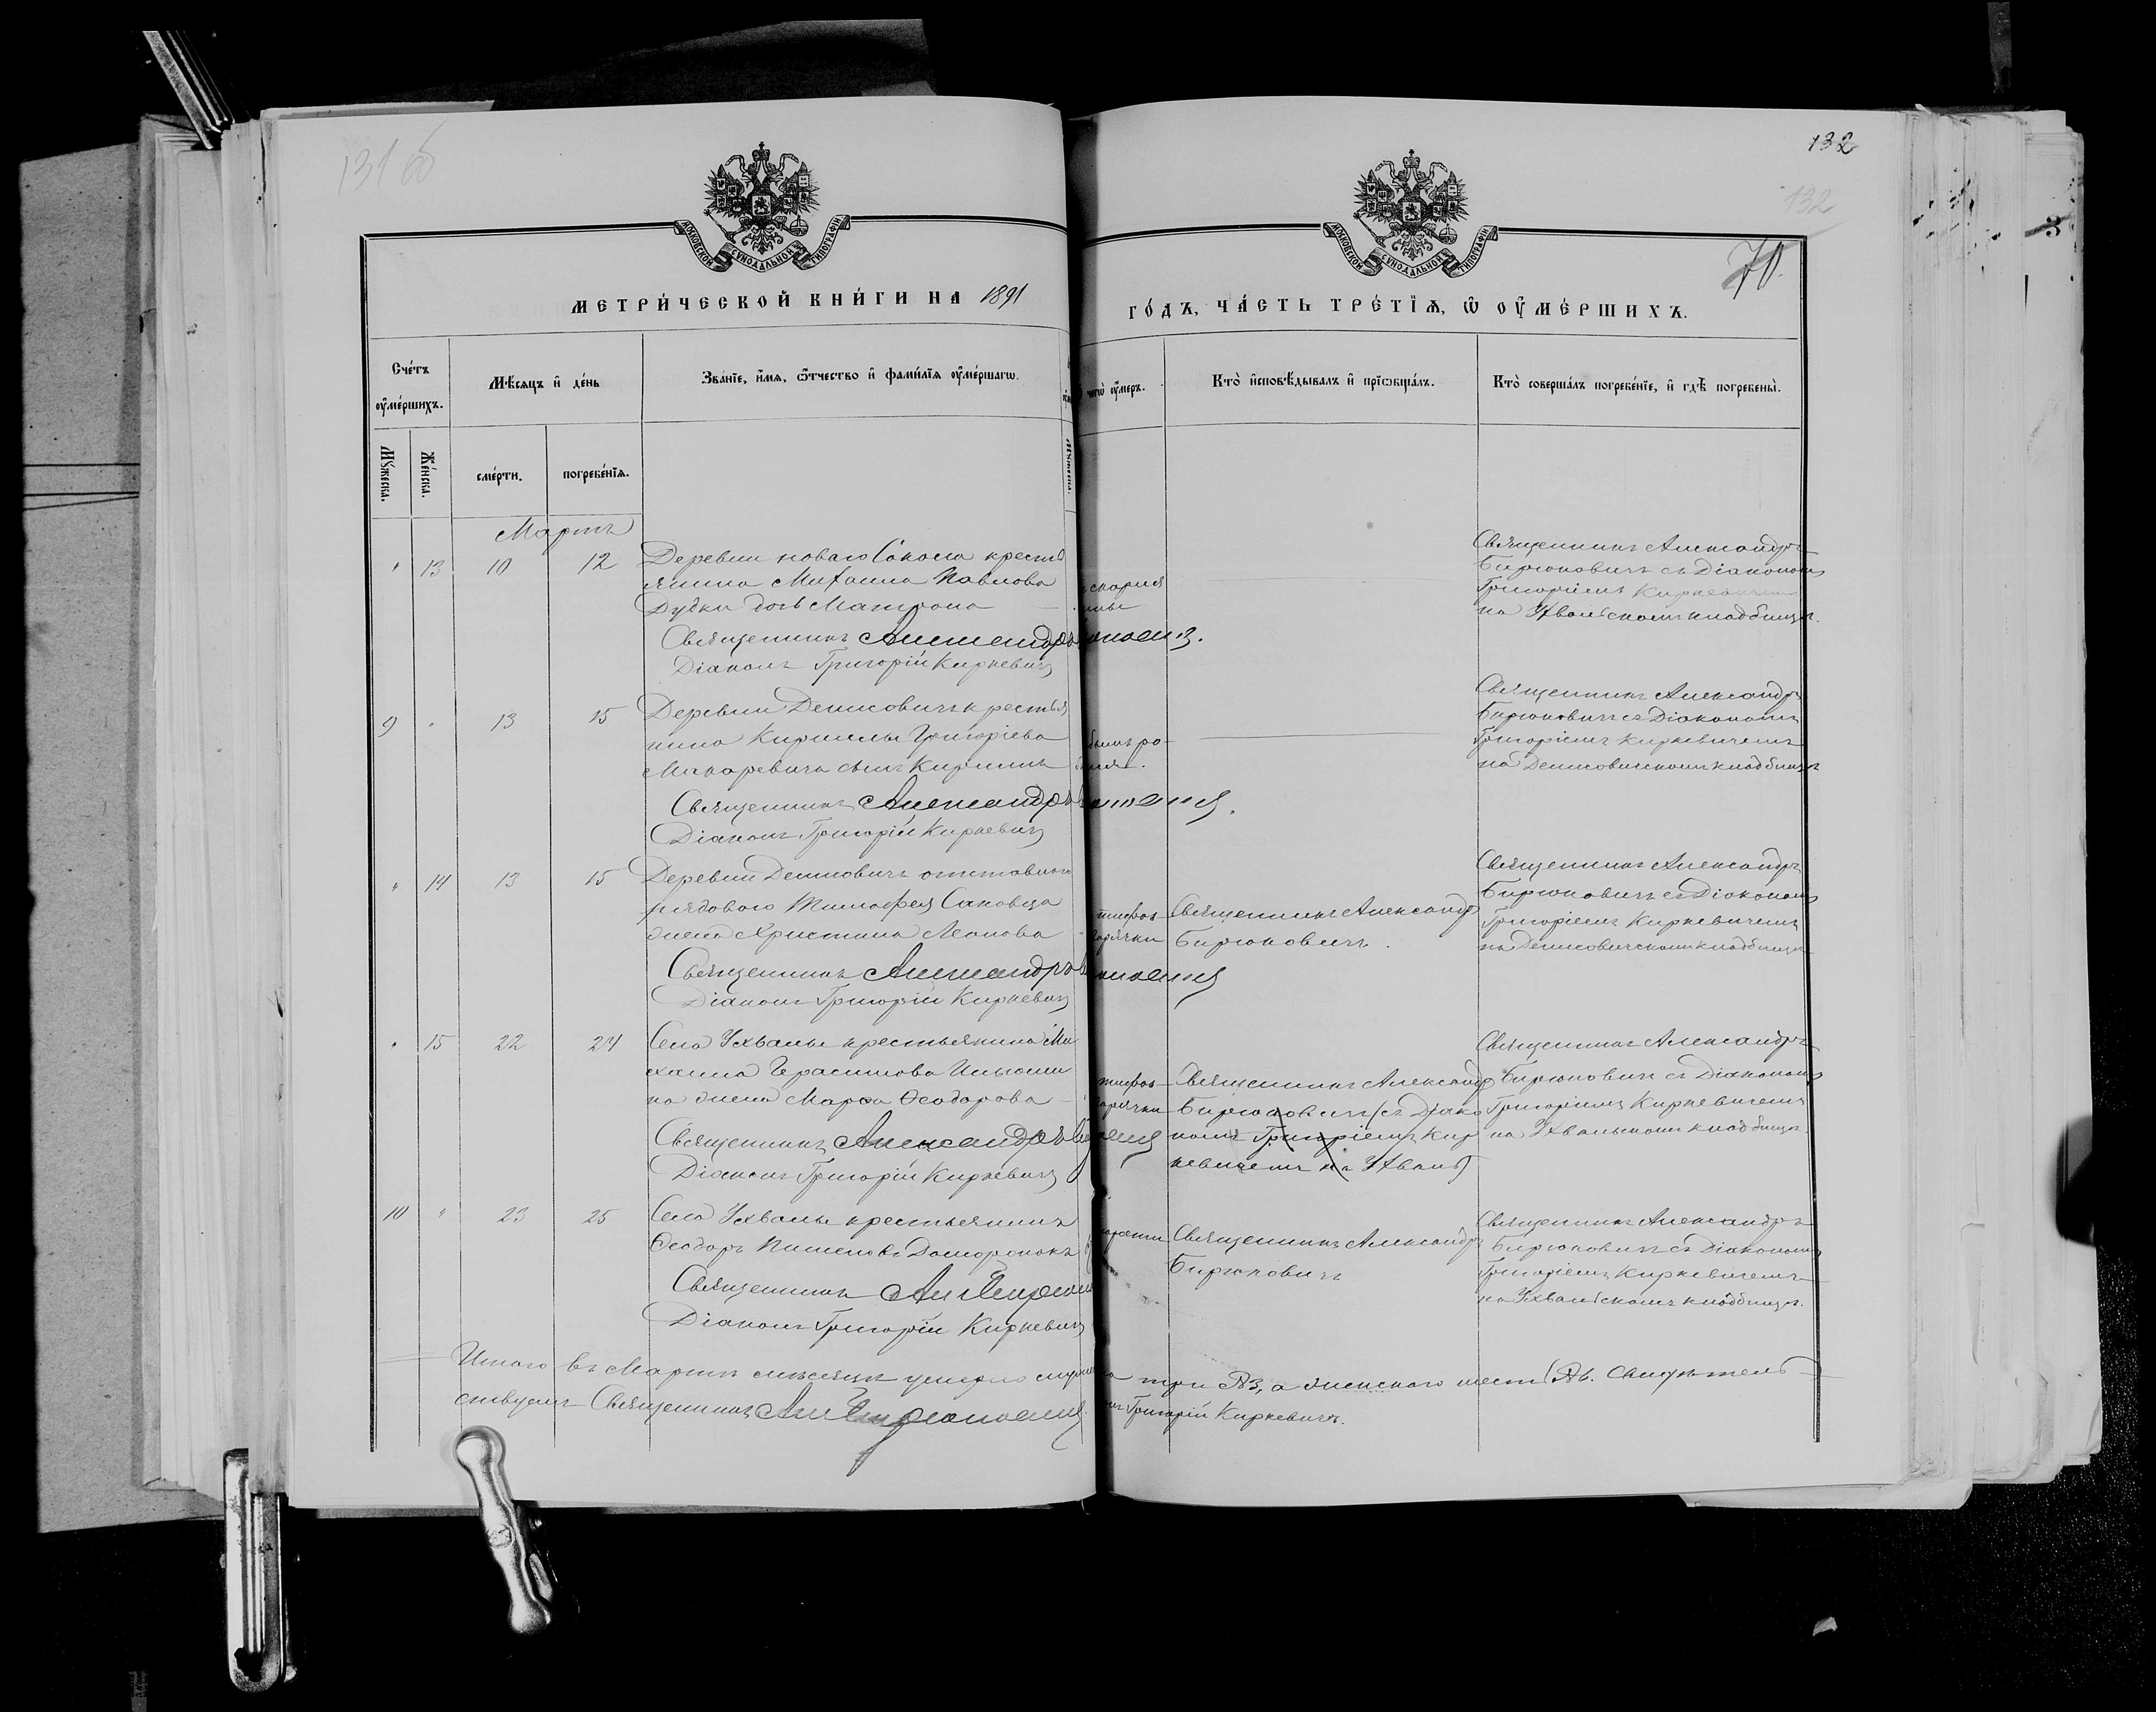 131 об
132
132
70.
МОСКОВСКОЙ СѴНОДАЛЬНОЙ ТИПОГРАФІИ
МОСКОВСКОЙ СѴНОДАЛЬНОЙ ТИПОГРАФІИ
МЕТРИ́ЧЕСКОЙ КНИ́ГИ НА 1891
ГО́ДЪ, ЧА́СТЬ ТРЕ́ТІѦ, Ѡ ОУ҆МЕ́РШИХЪ.
Сче́тъ оу҆ме́ршихъ.
Мѣ́сяцъ и҆ де́нь
Зва́нїе, и҆́мѧ, ѻ҆́тчество и҆ фами́лїѧ оу҆ме́ршагѡ.
чегѡ̀ оу҆́меръ.
Кто̀ и҆сповѣ́дывалъ и҆ прїѡбща́лъ.
Кто̀ соверша́лъ погребе́нїе, и҆ гдѣ̀ погребены̀.
Мꙋ́жеска.
Же́нска.
сме́рти.
погребе́нїѧ.
Мартъ
" 13 10 12 Деревни новаго Сокола кресть
янина Михаила Павлова
Дудки дочь Матрона
Священникъ Александръ
Діаконъ Григорій Киркевичъ
Священникъ Александръ
Бирюковичъ съ Діакономъ
Григоріемъ Киркевичемъ
на Ухвальскомъ кладбищѣ.
9 " 13 15 Деревни Денисовичъ крестья
нина Кириллы Григоріева
Макаревича сынъ Кириллъ
Священникъ Александръ
Діаконъ Григорій Киркевичъ
Священникъ Александръ
Бирюковичъ съ Діакономъ
Григоріемъ Киркевичемъ
на Денисовичскомъ кладбищѣ
" 14 13 15 Деревни Денисовичъ отставного
рядового Тимофея Саковца
жена Христина Леонова
Священникъ Александръ
Діаконъ Григорій Киркевичъ
тифоз
горячки
Священникъ Александръ
Бирюковичъ.
Священникъ Александръ
Бирюковичъ съ Діакономъ
Григоріемъ Киркевичемъ
на Денисовичскомъ кладбищѣ
" 15 22 24 Села Ухвалы крестьянина Ми
хаила Герасимова
на жена Марфа Ѳеодорова
Священникъ Александръ
Діаконъ Григорій Киркевичъ
тифоз
горячки
Священникъ Александръ
Бирюковичъ съ Діако
номъ Григоріемъ Кир
кевичемъ на Ухвальс
Священникъ Александръ
Бирюковичъ съ Діакономъ
Григоріемъ Киркевичемъ
на Ухвальскомъ кладбищѣ.
10 " 23 25 Села Ухвалы крестьянинъ
Ѳеодоръ Пименовъ
Священникъ Ал Бирюков
Діаконъ Григорій Киркевичъ
Священникъ Александръ
Бирюковичъ
Священникъ Александръ
Бирюковичъ съ Діакономъ
Григоріемъ Киркевичемъ
на Ухвальскомъ кладбищѣ.
Итого въ Мартѣ мѣсяцѣ умерло мужеска три /3/, а женскаго шесть /6/. Свидѣтель
ствуемъ Священникъ Ал Бирюковичъ Григорій Киркевичъ.